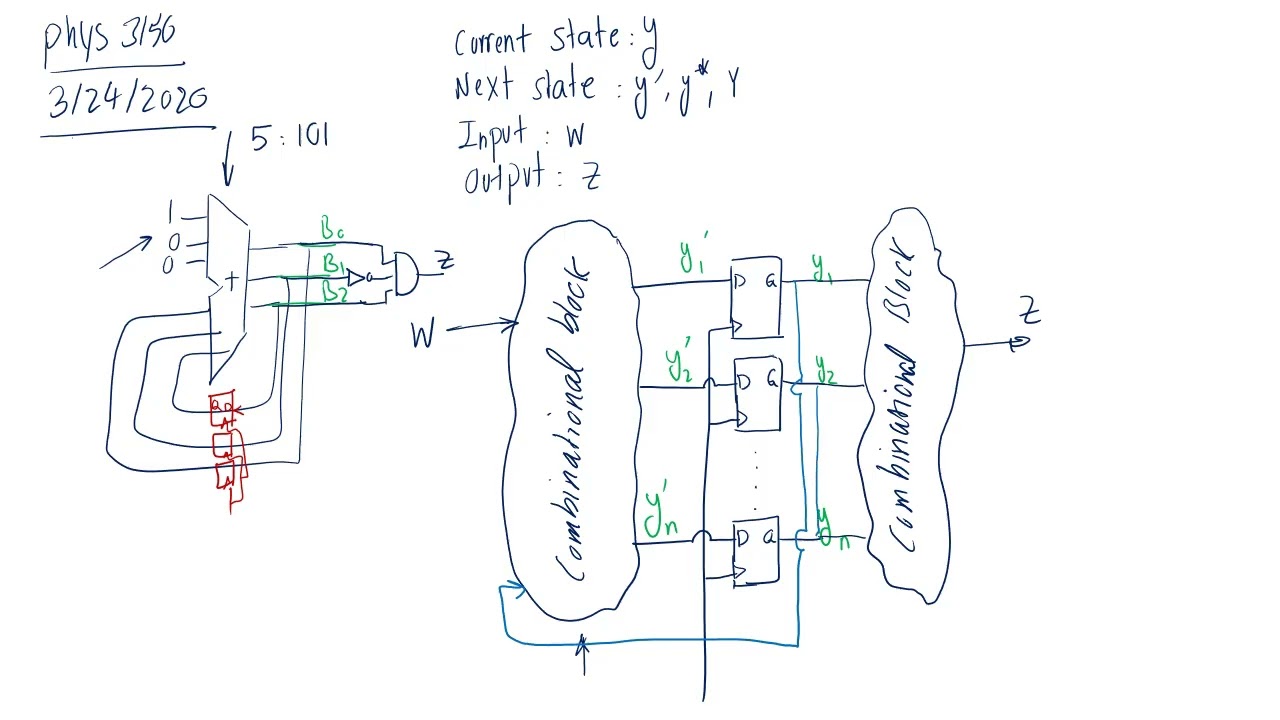 phys 3150
3/24/2020
Current state: y
Next state : y', y*, Y
Input : W
Output : Z
5 : 101
1
0
0
+
B0
B1
B2
Z
Q D
W
Combinational block
y1'
y2'
yn'
D Q
D Q
D Q
y1
y2
yn
Combinational Block
Z